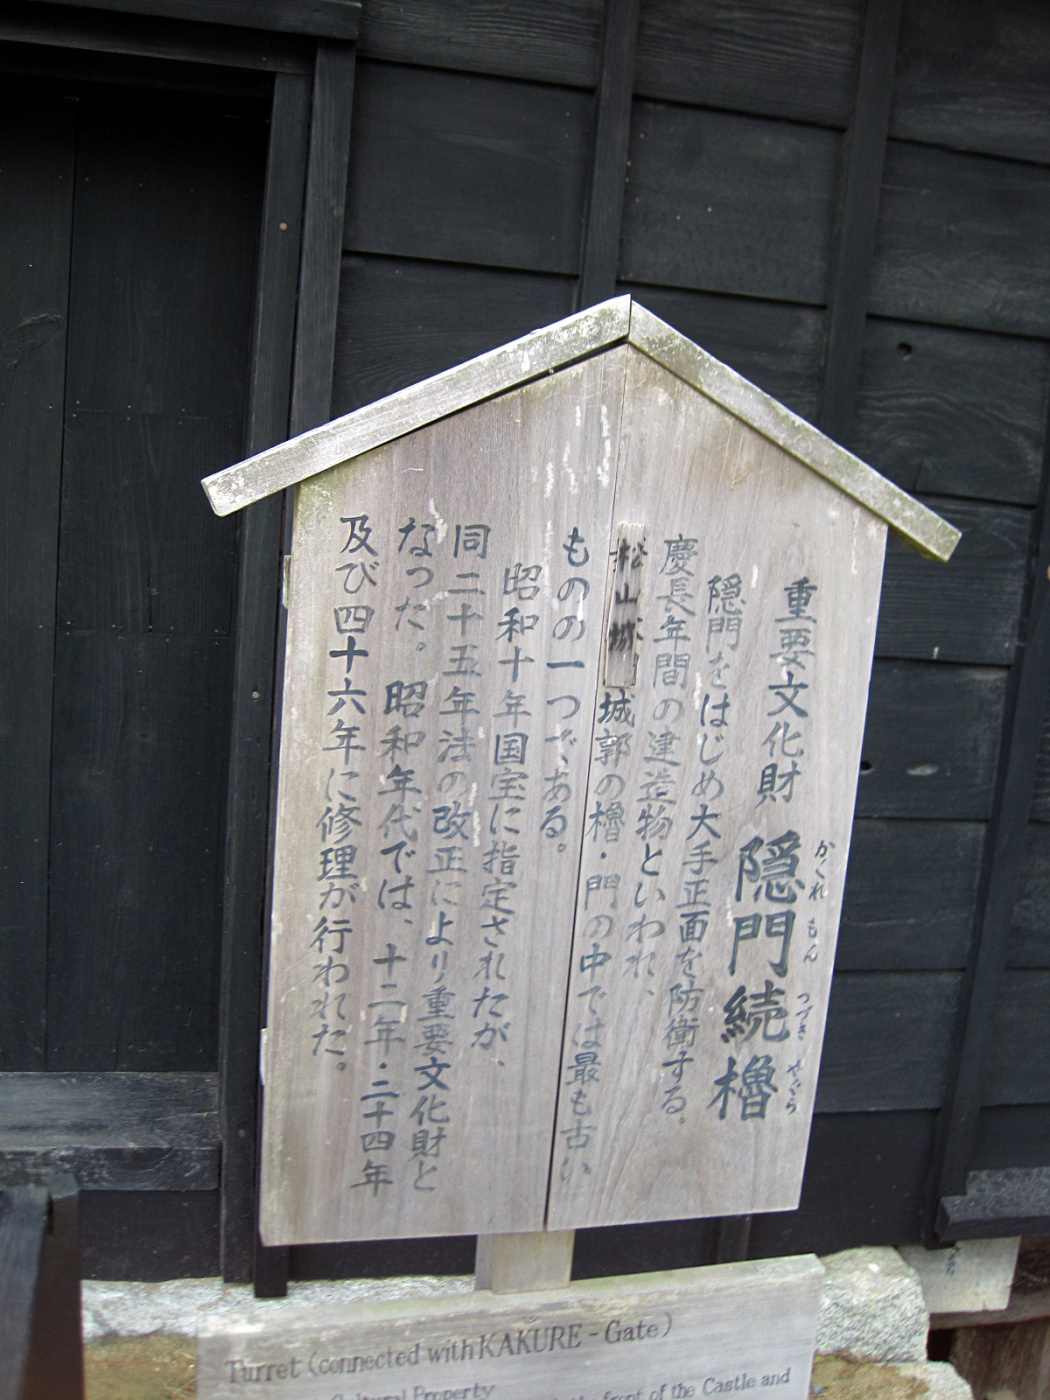 重要文化財 隠門続櫓
かくれ もん つづき やぐら
隠門をはじめ大手正面を防衛する。
慶長年間の建造物といわれ、
松山城 城郭の櫓・門の中では最も古い
ものの一つである。
昭和十年国宝に指定されたが、
同二十五年法の改正により重要文化財と
なった。昭和年代では、十二年・二十四年
及び四十六年に修理が行われた。
Turret (connected with KAKURE-Gate)
Cultural Property
the front of the Castle and